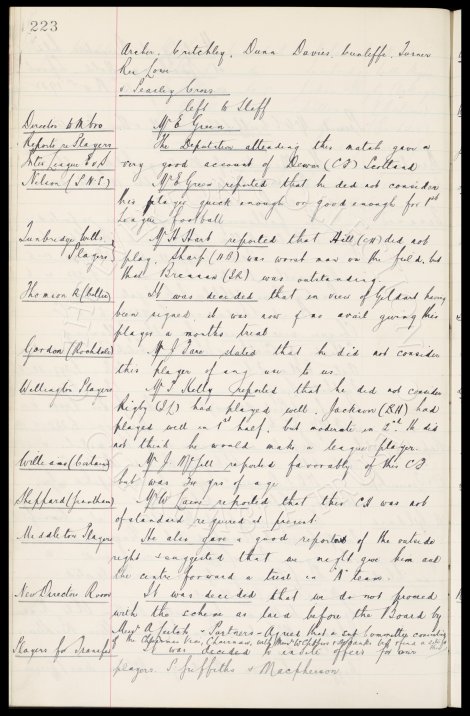 223
Archer, Critchley, Dunn, Davies, Cunliffe, Turner
Lowe
v Stanley Cross
left to Staff
Director to
Mr E Green
Reports re Players
The Deputation attending this match gave a
Inter League E v S
very good account of Dewar (CF) Scotland
Nelson (S.N.E.)
Mr E Green reported that he did not consider
this player quick enough or good enough for 1st
League football
Tunbridge Wells
Players
Mr H Hart reported that Hill (CH) did not
play. Sharp (HB) was worst man on the field, but
that Brennan (IR) was outstanding.
Thomson R
It was decided that in view of Geldard having
been signed, it was now of no avail giving this
player a months trial
Gordon (Rochdale)
Mr J Fare stated that he did not consider
this player of any use to us.
Wellington Players
Mr T Kelly reported that he did not consider
Rigby (IL) had played well. Jackson (RH) had
played well in 1st half, but moderate in 2nd. He did
not think he would make a league player.
Williams
Mr J reported favorably of this CF
but was 24 yrs of age
Sheppard (Grantham)
Mr W reported that this CH was not
of standard required at present
Middleton Players
He also gave a good report of the outside
right & suggested that we might give him and
the centre forward a trial in "A" team.
New Directors Room
It was decided that we do not proceed
with the scheme as laid before the Board by
Messrs A Leitch & Partners - Agreed that a sub Committee consisting
of the Chairman, Vice Chairman, with Messrs
Players for Transfer
It was decided to invite offers for our
players S Griffiths & Macpherson